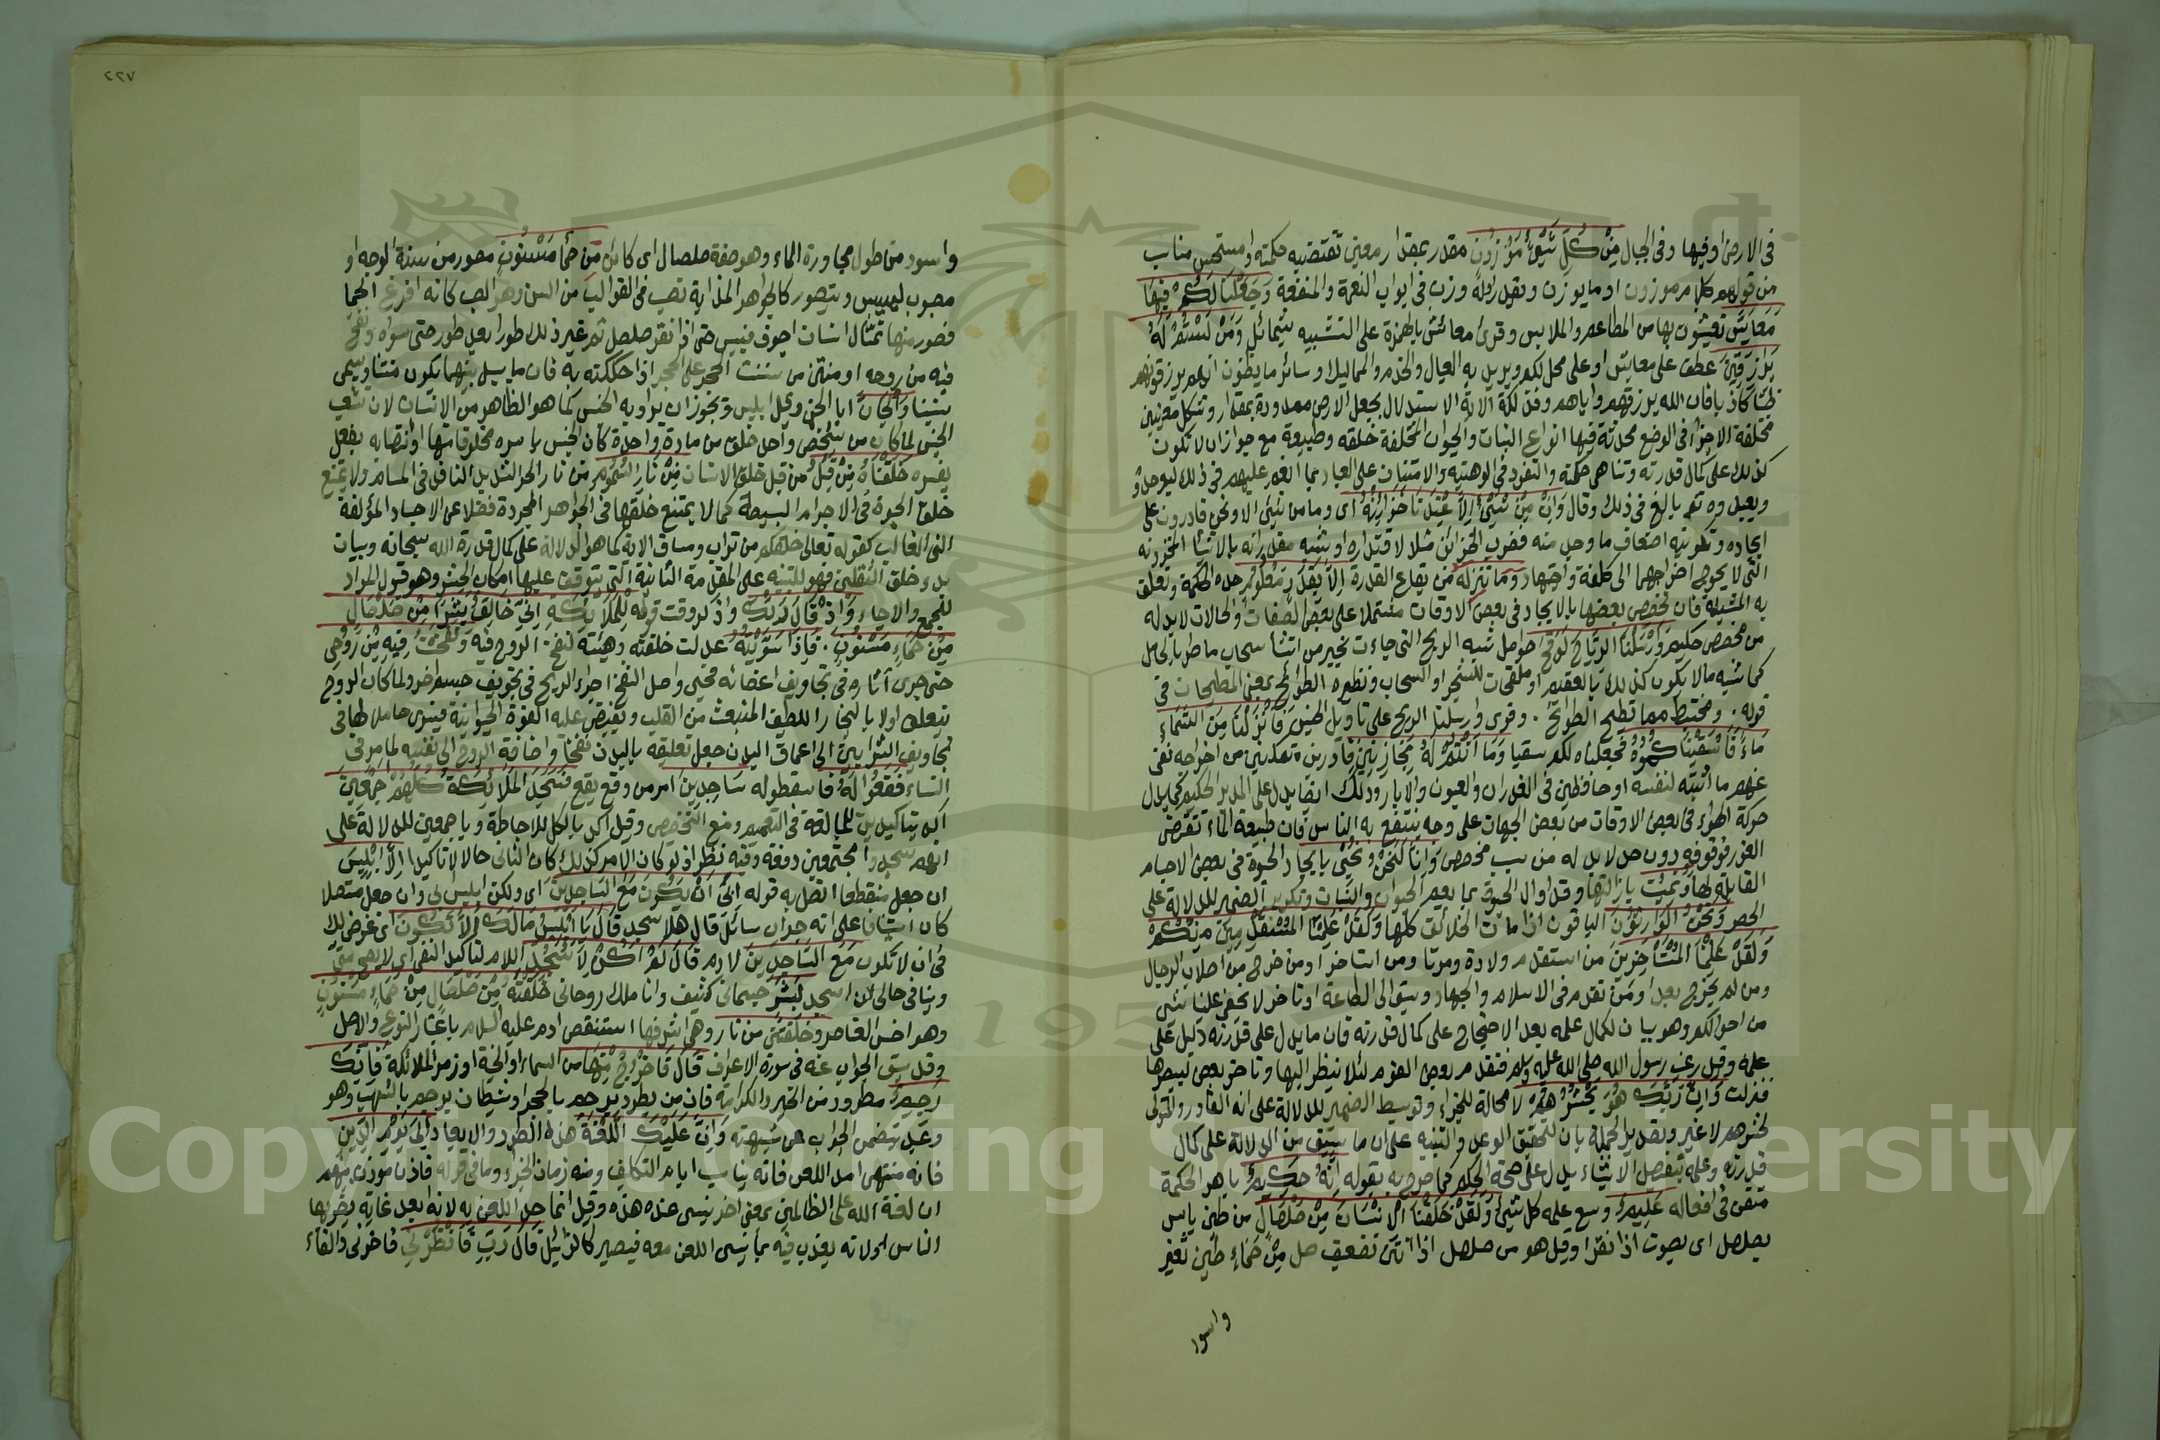 فى الارض اوفيها وفى الجبال مِنْ كُلِّ شَيْءٍ مَوْزُونٍ مقدر بمقدار معين تقتضيه حكمته او مستحسن مناسب
من قولهم كلام موزون او ما يوزن ويقدر اوله وزن فى ابواب النعمة والمنفعة وَجَعَلْنَا لَكُمْ فِيهَا
مَعَايِشَ تعيشون بها من المطاعم والملابس وقرئ معائش بالهمزة على التشبيه بشمائل وَمَنْ لَسْتُمْ لَهُ
بِرَازِقِينَ عطف على معايش او على محل لكم ويريد به العيال والخدم والمماليك وسائر ما يظنون انهم يرزقونهم
ظنا كاذبا فان الله يرزقهم واياهم وفذلكة الاية الاستدلال بجعل الارض ممدودة بمقدار وشكل معينين
مختلفة الاجزاء فى الوضع محدثة فيها انواع النبات والحيوان المختلفة خلقه وطبيعة مع جواز ان لا تكون
كذلك على كمال قدرته وتناهى حكمته والتفرد فى الوهيته والامتنان على العباد بما انعم عليهم فى ذلك ليوحدو
ويعبدوه ثم بالغ فى ذلك وقال وَاِنْ مِنْ شَيْءٍ اِلَّا عِنْدَنَا خَزَائِنُهُ اى وما من شيئ الا ونحن قادرون على
ايجاده وتكوينه اضعاف ما وجد منه فضرب الخزائن مثلا لاقتداره او شبه مقدراته بالاشياء المخزونه
التى لا يحوج اخراجها الى كلفة واجتهاد وَمَا نُنَزِّلُهُ من بقاع القدرة اِلَّا بِقَدَرٍ مَعْلُومٍ حده الحكمة وتعلق
به المشيئة فان تخصيص بعضها بالايجاد فى بعض الاوقات مشتملا على بعض الصفات والحالات لابد له
من مخصص حكيم وَاَرْسَلْنَا الرِّيَاحَ لَوَاقِحَ حوامل شبه الريح التى جاءت بخير من انشاء سحاب ماطر بالحامل
كما شبه مالا يكون كذلك بالعقيم او ملقحات للشجر او السحاب ونظيره الطوائح بمعنى المطيحات فى
قوله . ومختبط مما تطيح الطوائح . وقرئ وارسلنا الريح على تاويل الجنس فَاَنْزَلْنَا مِنَ السَّمَاءِ
مَاءً فَاَسْقَيْنَاكُمُوهُ فجعلناه لكم سقيا وَمَا اَنْتُمْ لَهُ بِخَازِنِينَ قادرين متمكنين من اخراجه نفى
عنهم ما اثبته لنفسه او حافظين فى الغدران والعيون والابار وذلك ايضا يدل على المدبر الحكيم كما يدل
حركة الهواء فى بعض الاوقات من بعض الجهات على وجه ينتفع به الناس فان طبيعة الماء تقتضى
الغور فوقوفه دون حد لابد له من سبب مخصص وَاِنَّا لَنَحْنُ نُحْيِي بايجاد الحيوة فى بعض الاجسام
القابلة لها وَنُمِيتُ بازالتها وقد اول الحيوة بما يعم الحيوان والنبات وتكرير الضمير للدلالة على
الحصر وَنَحْنُ الْوَارِثُونَ الباقون اذا مات الخلائق كلها وَلَقَدْ عَلِمْنَا الْمُسْتَقْدِمِينَ مِنْكُمْ
وَلَقَدْ عَلِمْنَا الْمُسْتَأْخِرِينَ من استقدم ولادة وموتا ومن استاخر او من خرج من اصلاب الرجال
ومن لم يخرج بعد او من تقدم فى الاسلام والجهاد وسبق الى الطاعة او تاخر لا يخفى علينا شئ
من احوالكم وهو بيان لكمال علمه بعد الاحتجاج على كمال قدرته فان ما يدل على قدرته دليل على
علمه وقيل رغب رسول الله صلى الله عليه وسلم فتقدم بعض القوم لئلا ينظر اليها وتاخر بعض ليبصرها
فنزلت وَاِنَّ رَبَّكَ هُوَ يَحْشُرُهُمْ لا محالة للجزاء وتوسيط الضمير للدلالة على انه القادر والمتولى
لحشرهم لا غير وتصدير الجملة بان لتحقيق الوعد والتنبيه على ان ما سبق من الدلالة على كمال
قدرته وعلمه بتفصيل الاشياء يدل على صحة الحكم كما صرح به بقوله اِنَّهُ حَكِيمٌ باهر الحكمة
متقن فى افعاله عَلِيمٌ وسع علمه كل شيئ وَلَقَدْ خَلَقْنَا الْاِنْسَانَ مِنْ صَلْصَالٍ من طين يابس
يصلصل اى يصوت اذا نقر وقيل هو من صلصل اذا انتن تضعيف صل مِنْ حَمَاءٍ طين تغير
واسود
٢٢٧
واسود من طول مجاورة الماء وهو صفة صلصال اى كائن مِنْ حَمَأٍ مَسْنُونٍ مصور من سنة الوجه او
مصبوب لييبس ويتصور كالجواهر المذابة تصب فى القوالب من السن وهو الصب كانه افرغ الحما
فصور منها تمثال انسان اجوف فيبس حتى اذا نقر صلصل ثم غير ذلك طورا بعد طور حتى سواه ونفخ
فيه من روحه او منتن من سننت الحجر على الحجر اذا حككته به فان ما يسيل بينهما يكون منتنا ويسمى
سنينا وَالْجَانَّ ابا الجن وقيل ابليس ويجوز ان يراد به الجنس كما هو الظاهر من الانسان لان تشعب
الجنس لما كان من شخص واحد خلق من مادة واحدة كان الجنس باسره مخلوقا منها وانتصابه بفعل
يفسره خَلَقْنَاهُ مِنْ قَبْلُ من قبل خلق الانسان مِنْ نَارِ السَّمُومِ من نار الحر الشديد النافذ فى المسام ولا يمتنع
خلق الحيوة فى الاجرام البسيطة كما لا يمتنع خلقها فى الجواهر المجردة فضلا عن الاجساد المؤلفة
التى الغالب كقوله تعالى خلقكم من تراب ومساق الاية كما هو الدلالة على كمال قدرة الله سبحانه وبيان
بدء خلق الثقلين فهو للتنبيه على المقدمة الثانية التى تتوقف عليها امكان الحشر وهو قبول المواد
للجمع والاحياء وَاِذْ قَالَ رَبُّكَ واذكر وقت قوله لِلْمَلَائِكَةِ اِنِّي خَالِقٌ بَشَرًا مِنْ صَلْصَالٍ
مِنْ حَمَاءٍ مَسْنُونٍ . فَاِذَا سَوَّيْتُهُ عدلت خلقته وهيئته لنفخ الروح فيه وَنَفَخْتُ فِيهِ مِنْ رُوحِي
حتى جرى آثاره فى تجاويف اعضائه فحيى واصل النفخ اجراء الريح فى تجويف جسم اخر ولما كان الروح
يتعلق اولا بالبخار اللطيف المنبعث من القلب وتفيض عليه القوة الحيوانية فيسرى حاملا لها فى
تجاويف الشرايين الى اعماق البدن جعل تعليقه بالبدن نفخا واضافة الروح الى نفسه لما مر فى
النساء فَقَعُوا لَهُ فاسقطوا له سَاجِدِينَ امر من وقع يقع فَسَجَدَ الْمَلَائِكَةُ كُلُّهُمْ اَجْمَعُونَ
اكد بتاكيدين للمبالغة فى التعميم ومنع التخصيص وقيل اكد بالكل للاحاطة وباجمعين للدلالة على
انهم سجدوا مجتمعين دفعة وفيه نظر اذ لو كان الامر كذلك كان الثانى حالا لا تاكيدا اِلَّا اِبْلِيسَ
ان جعل منقطعا اتصل به قوله اَبَى اَنْ يَكُونَ مَعَ السَّاجِدِينَ اى ولكن ابليس ابى وان جعل متصلا
كان استينافا على انه جواب سائل قال هلا سجد قَالَ يَا اِبْلِيسُ مَالَكَ اَلَّا تَكُونَ اى غرض لك
فى ان لا تكون مَعَ السَّاجِدِينَ لادم قَالَ لَمْ اَكُنْ لِاَسْجُدَ اللام لتاكيد النفى اى لا يصح منى
وينافى حالى ان اسجد لِبَشَرٍ جسمانى كثيف وانا ملك روحانى خَلَقْتَهُ مِنْ صَلْصَالٍ مِنْ حَمَاءٍ مَسْنُونٍ
وهو اخس العناصر وخلقتنى من نار وهى اشرفها استنقص ادم عليه السلام باعتبار النوع والاصل
وقد سبق الجواب عنه فى سورة الاعراف قَالَ فَاخْرُجْ مِنْهَا من السماء او الجنة او زمر الملائكة فَاِنَّكَ
رَجِيمٌ مطرود من الخير والكرامة فان من يطرد يرجم بالحجر او شيطان يرجم بالشهب وهو
وعيد يتضمن الجواب عن شبهته وَاِنَّ عَلَيْكَ اللَّعْنَةَ هذا الطرد والابعاد اِلَى يَوْمِ الدِّينِ
فانه منتهى امد اللعن فانه يناسب ايام التكليف ومنه زمان الجزاء وما فى قوله فاذن موذن بينهم
ان لعنة الله على الظالمين بمعنى اخر ينسى عنده هذه وقيل انما حد اللعن به لانه ابعد غاية يضربها
الناس او لانه يعذب فيه بما ينسى اللعن معه فيصير كالزائل قَالَ رَبِّ فَاَنْظِرْنِي فاخرنى والفاء
Copyright © King Saud University
1957